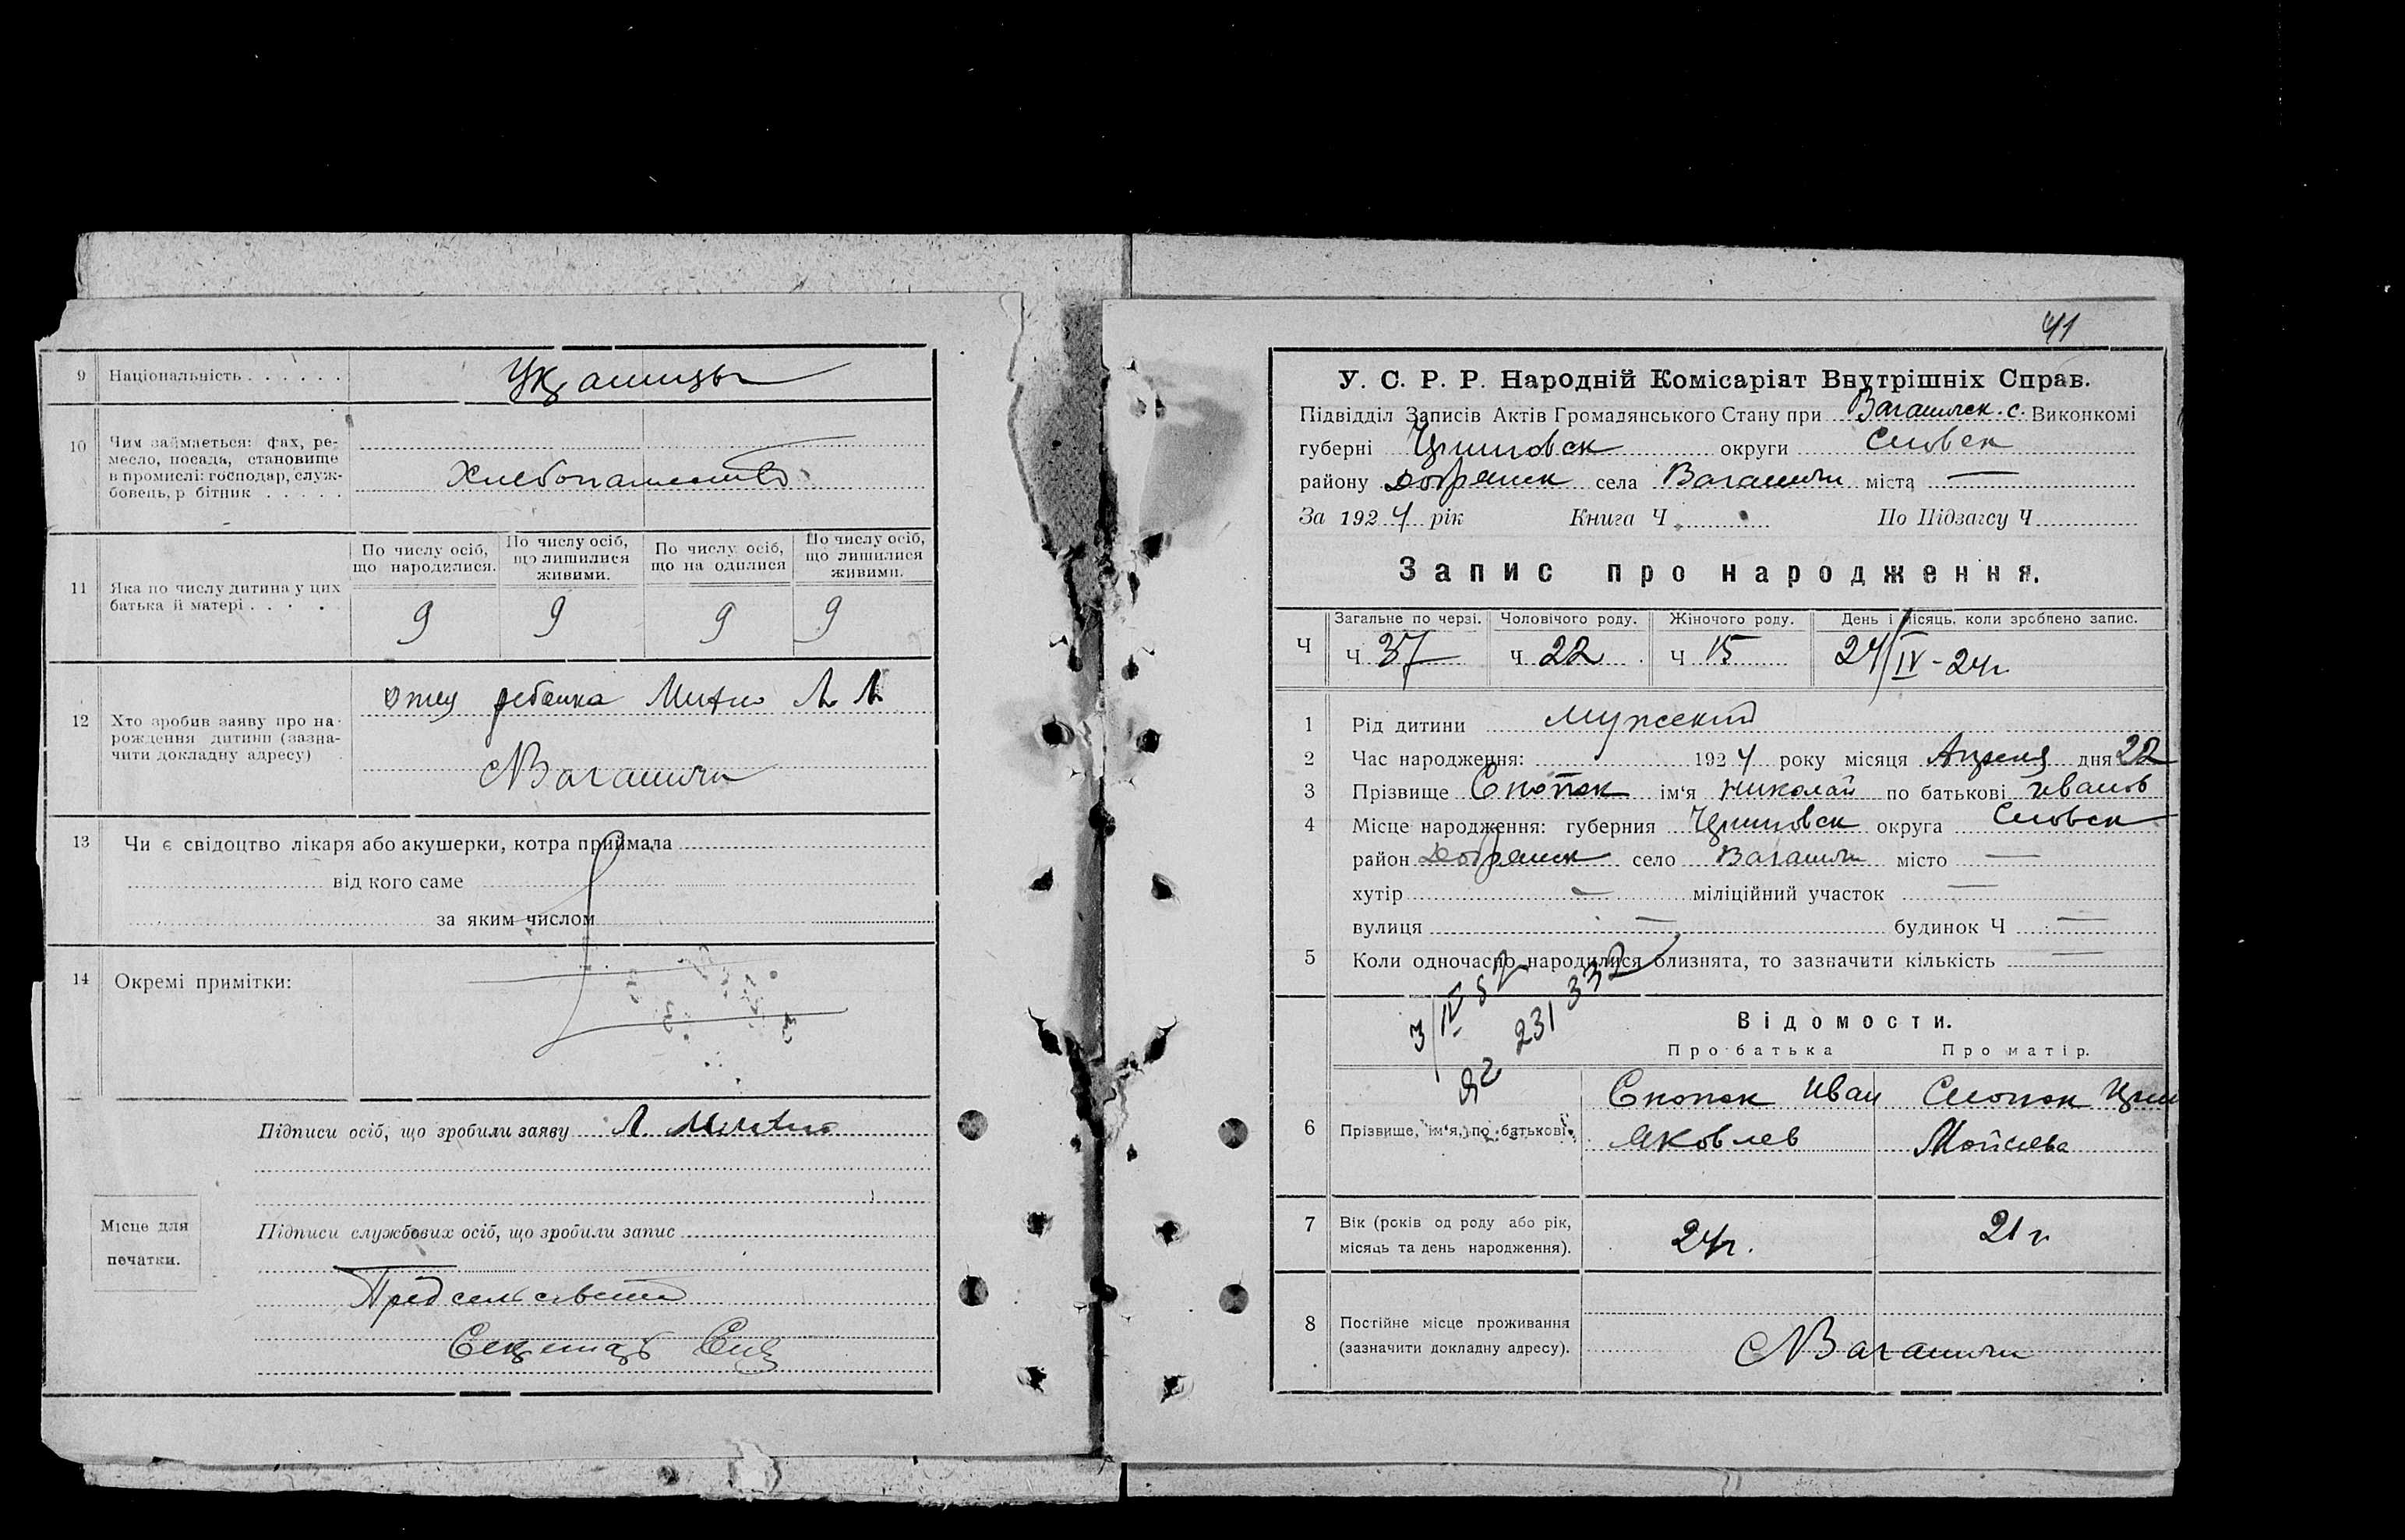 9 Національність . . . . . . Украинцы
10 Чим займається: фах, ре-
месло, посада, становище
в промислі: господар, служ-
бовець, р бітник . . . . . Хлебопашество
11 Яка по числу дитина у цих
батька й матері . . . .
По числу осіб,
що народилися.
По числу осіб,
що лишилися
живими.
По числу осіб,
що на одилися
По числу осіб,
що лишилися
живими.
9 9 9 9
12 Хто зробив заяву про на-
рождення дитини (зазна-
чити докладну адресу)
отец ребенка
Вагани чи
13 Чи є свідоцтво лікаря або акушерки, котра приймала
від кого саме
за яким числом
14 Окремі примітки:
Підписи осіб, що зробили заяву
Місце для
печатки.
Підписи службових осіб, що зробили запис
Пред сельсовета
Секретарь
41
У. С. Р. Р. Народній Комісаріят Внутрішніх Справ.
Підвідділ Записів Актів Громадянського Стану при Ваганичск. с. Виконкомі
губерні Черниговск округи Сновск
району Добрянск села Ваганичи міста —
За 1924 рік Книга Ч. По Підзагсу Ч.
Запис про народження.
Загальне по черзі. Чоловічого роду. Жіночого роду. День і місяць, коли зроблено запис.
Ч Ч 37 Ч 22 Ч 15 24/IV-24г
1 Рід дитини мужской
2 Час народження: 1924 року місяця Апреля дня 22
3 Прізвище Снопок ім'я Николай по батькові Иванов
4 Місце народження: губерния Черниговск округа Сновск
район Добрянск село Ваганичи місто —
хутір — міліційний участок —
вулиця — будинок Ч —
5 Коли одночасно народилися близнята, то зазначити кількість —
3/IV 52
231332
Відомости.
Про батька Про матір.
6 Прізвище, ім'я, по батькові. Снопок Иван Снопок
Яковлев Мойсеева
7 Вік (років од роду або рік,
місяць та день народження). 24г. 21г
8 Постійне місце проживання
(зазначити докладну адресу). Ваганичи